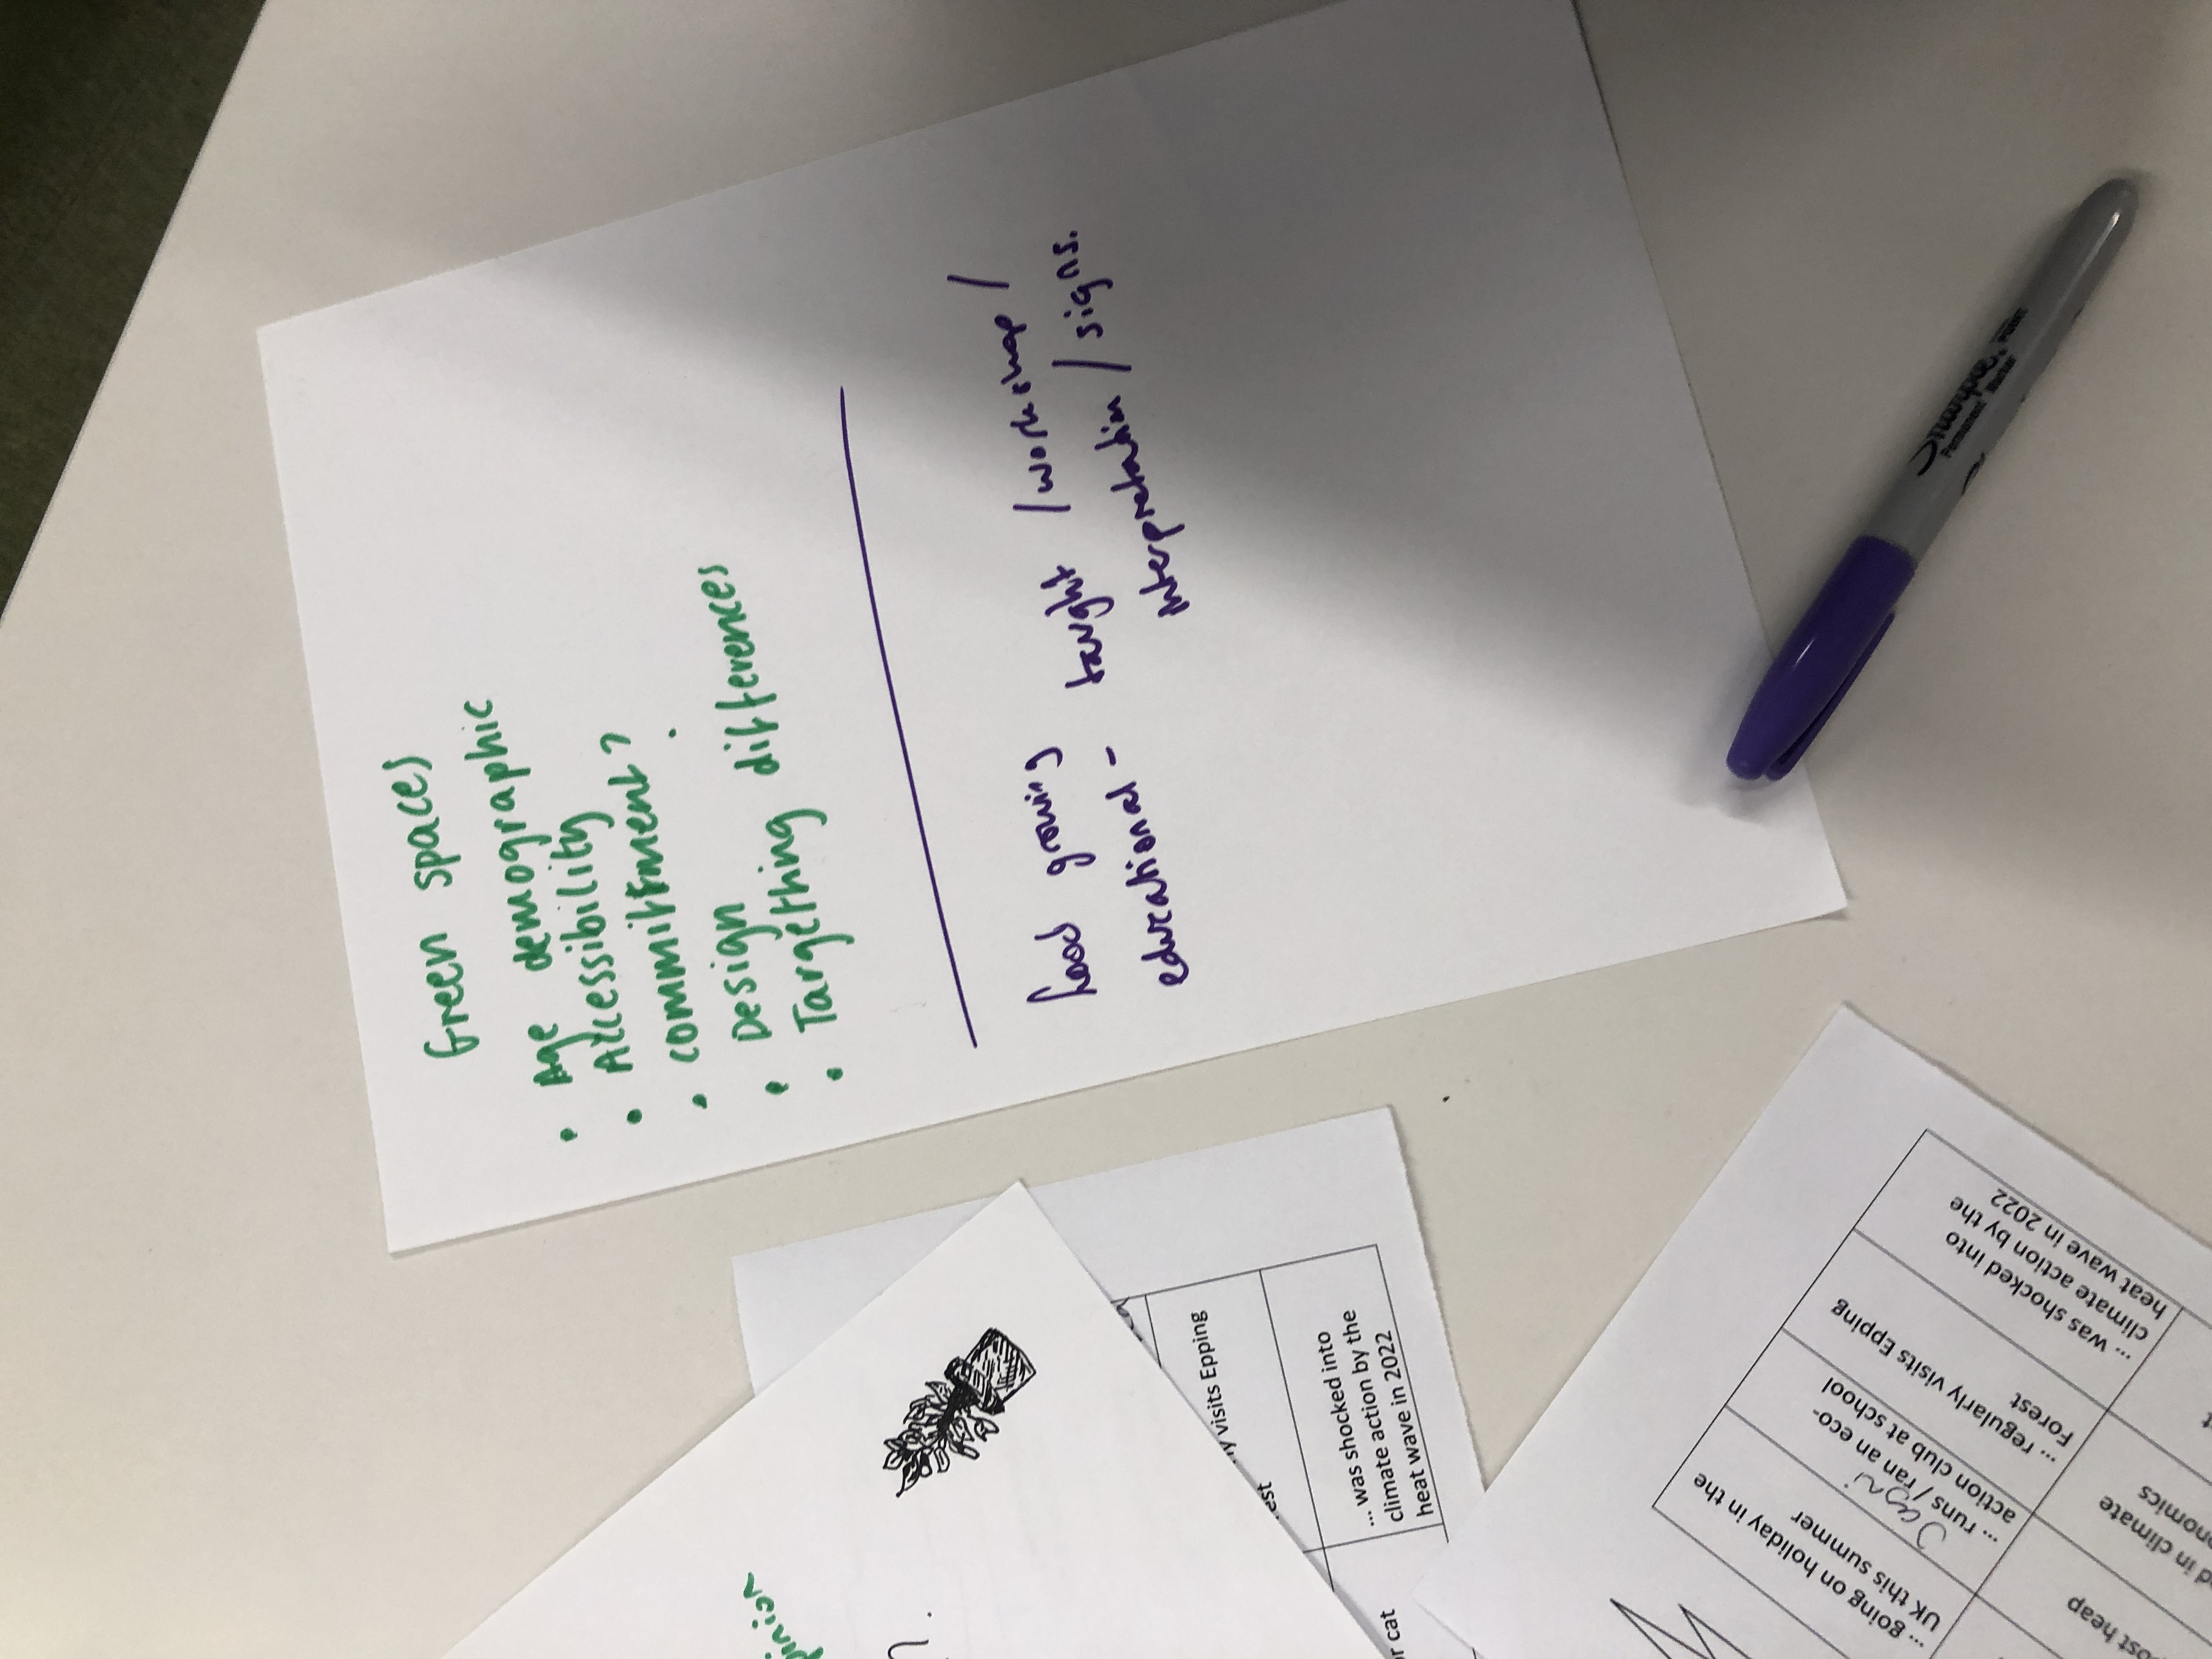 Green spaces
• Age demographic
• Accessibility
• committment?
• Design
• Targetting differences
food growing
educational - taught / workshop /
interpretation / signs.
pinion
?.
visits Epping
est
... was shocked into
climate action by the
heat wave in 2022
r cat
... going on holiday in the
UK this summer
... runs / ran an eco-
action club at school
... regularly visits Epping
Forest
... was shocked into
climate action by the
heat wave in 2022
ost heap
d in climate
onomics
Sharpie.
Permanent Marker